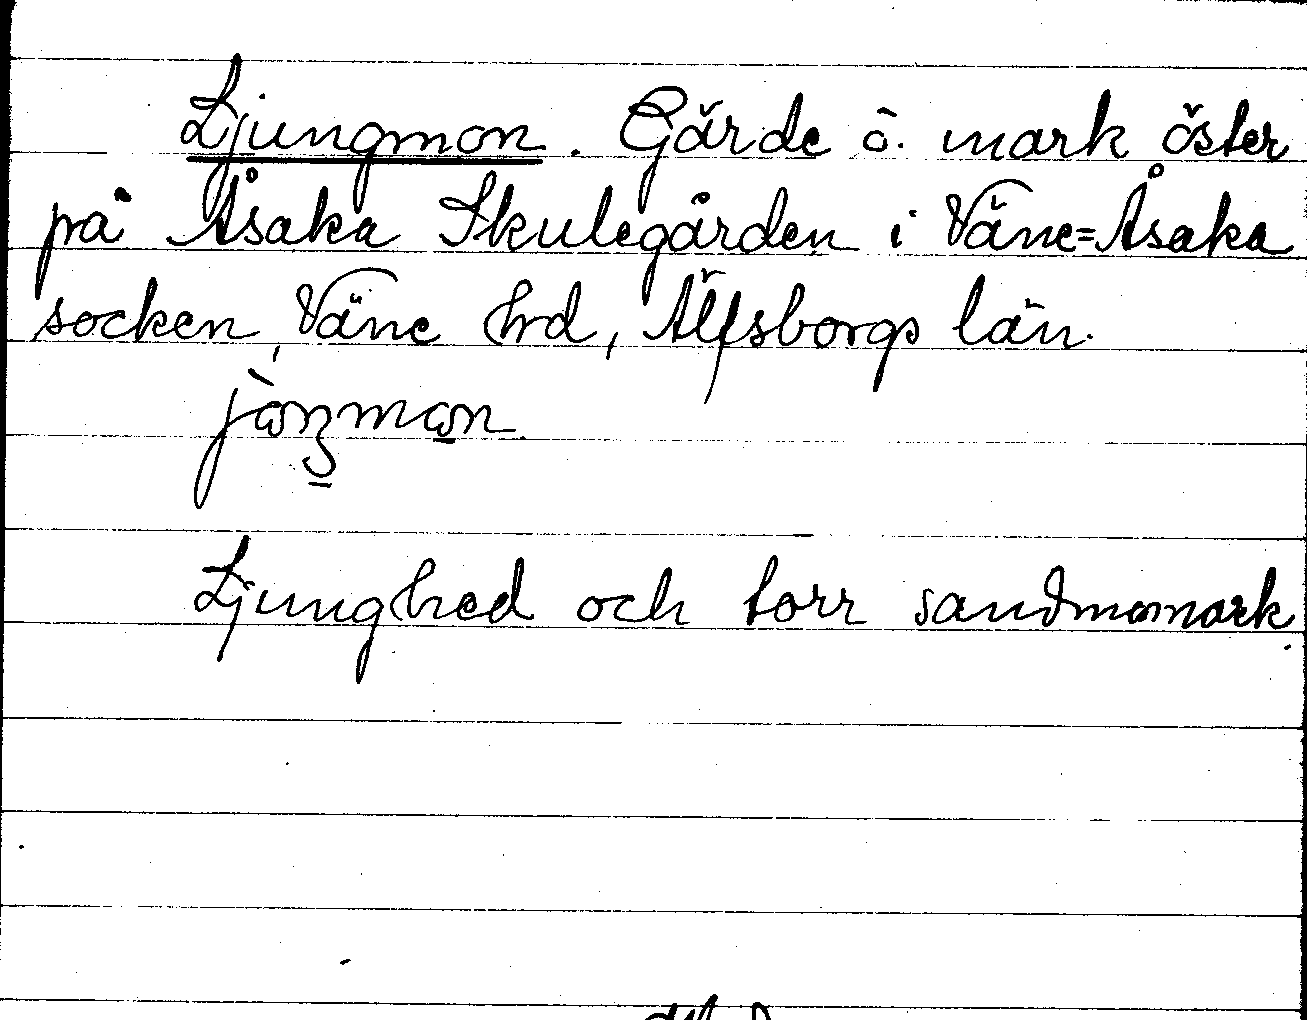 Ljungmon. Gärde ö. mark öster
på Åsaka Skulegården i Väne=Åsaka
socken, Väne hrd, Älfsborgs län.
Ljunghed och torr sandmomark